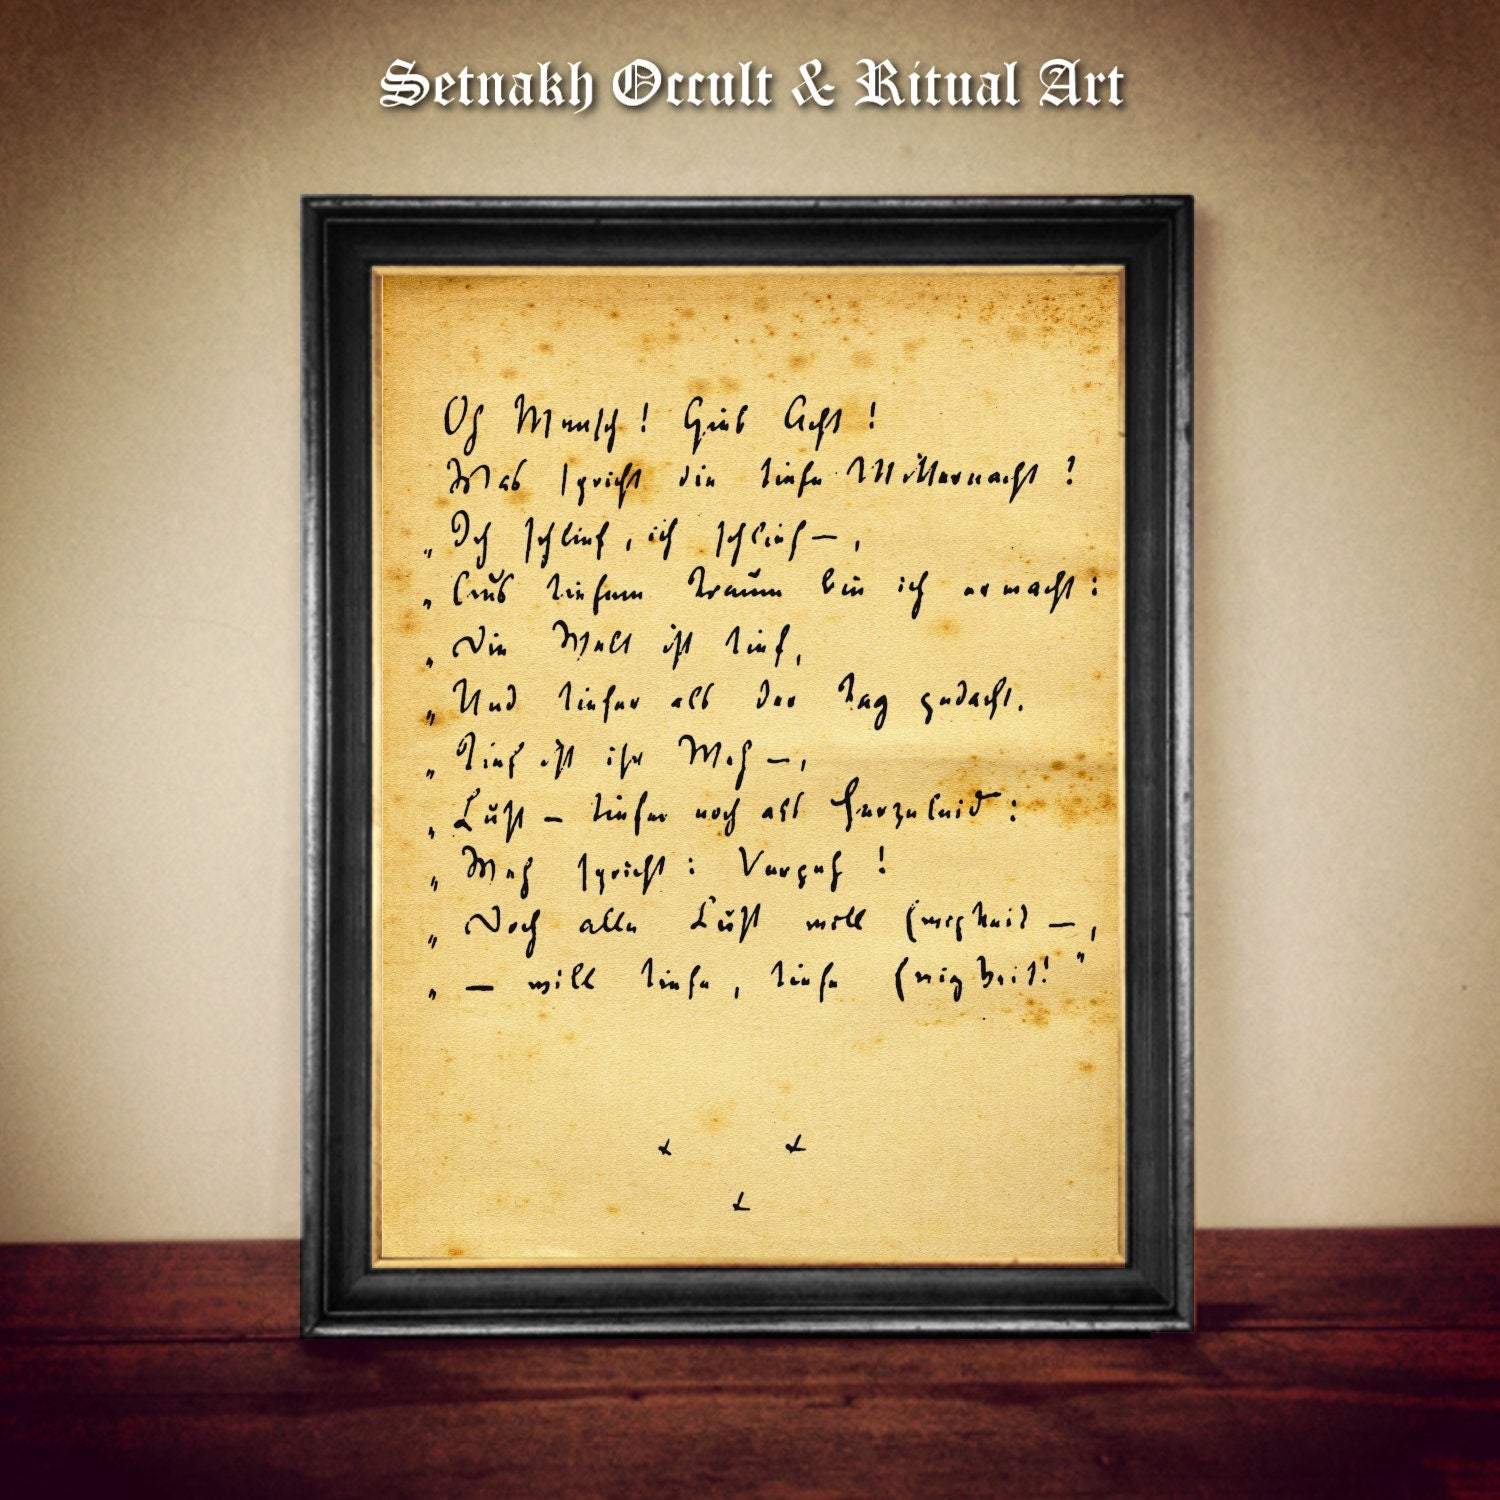 Setnakh Occult & Ritual Art
Oh Mensch! Gieb Acht!
Was spricht die tiefe Mitternacht?
„Ich schlief, ich schlief —,
„Aus tiefem Traum bin ich erwacht:
„Die Welt ist tief,
„Und tiefer als der Tag gedacht.
„Tief ist ihr Weh —,
„Lust — tiefer noch als Herzeleid:
„Weh spricht: Vergeh!
„Doch alle Lust will Ewigkeit —,
„— will tiefe, tiefe Ewigkeit!"